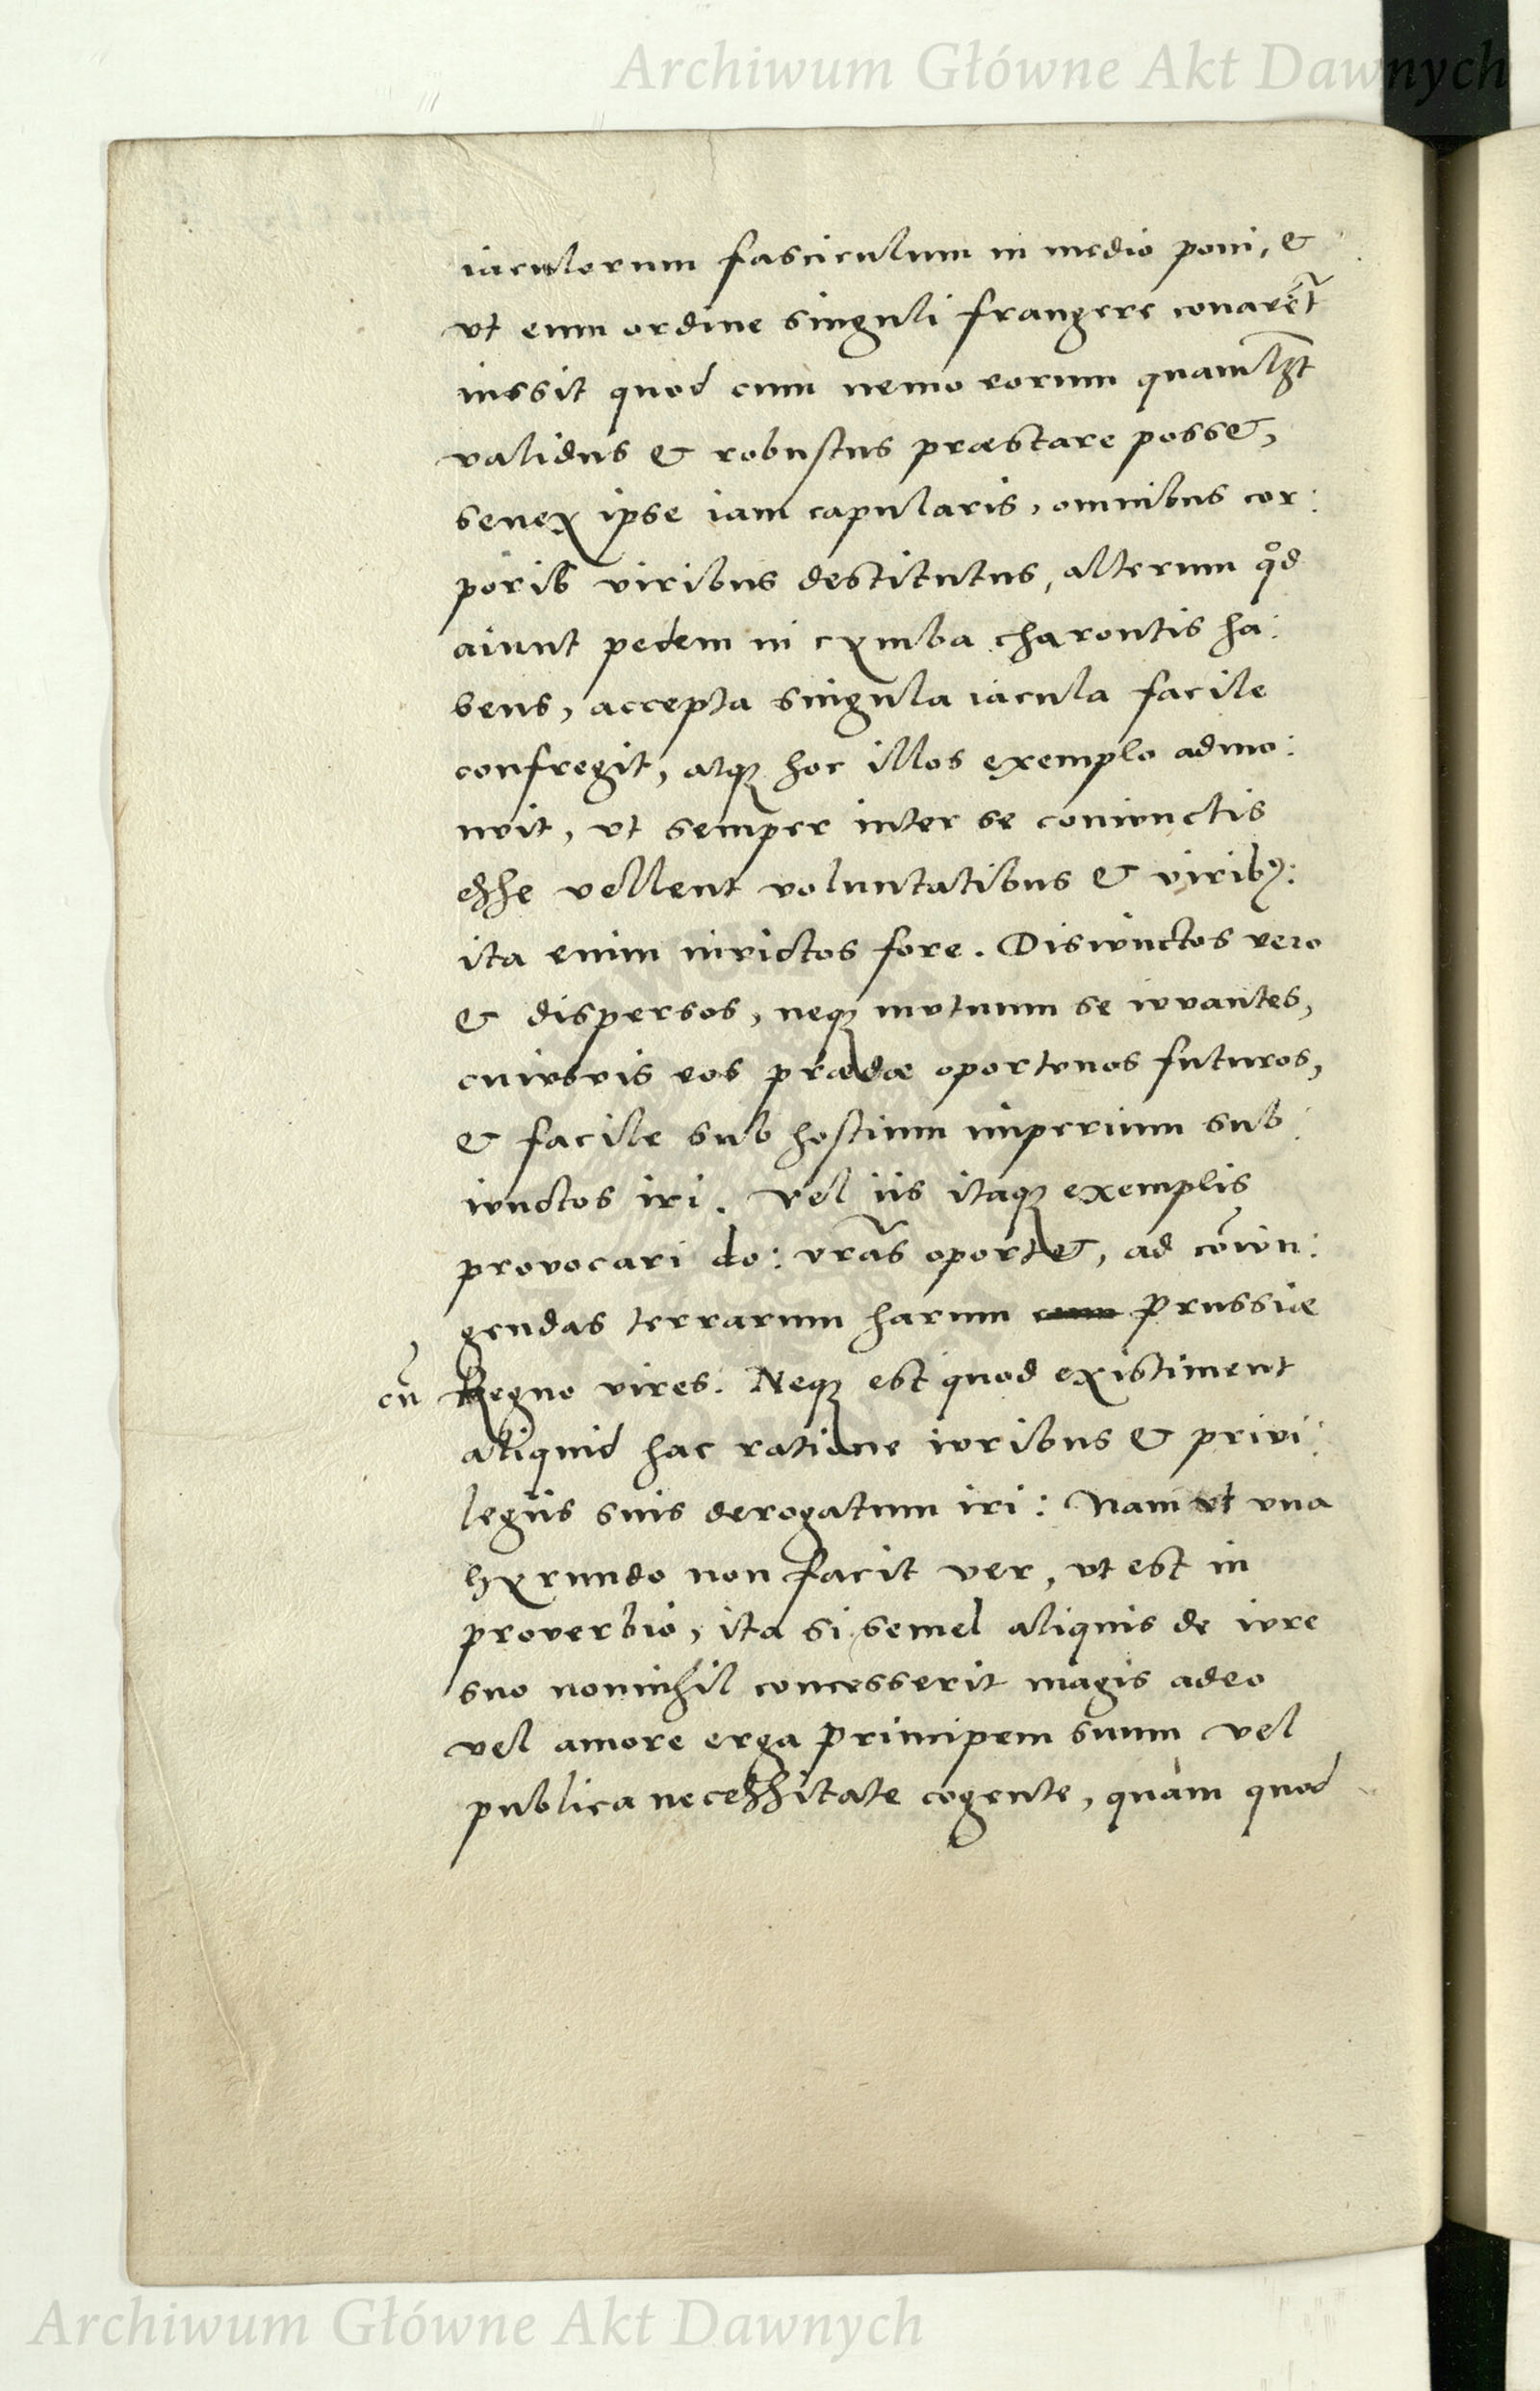 Archiwum Główne Akt Dawnych
iaculorum fasciculum in medio poni, &
vt eum ordine singuli frangere conarēt
iussit quod cum nemo eorum quamlꝫt
validus & robustus præstare posset,
senex ipse iam capularis, omnibus cor:
poris viribus destitutus, alterum qͦd
aiunt pedem in cymba charontis ha:
bens, accepta singula iacula facile
confregit, atqꝫ hoc illos exemplo admo:
nvit, vt semper inter se coniunctis
esse vellent voluntatibus & viribꝰ:
ita enim invictos fore. Disiunctos vero
& dispersos, neqꝫ mvtuum se iuvantes,
cuiusvis eos prædæ oportunos futuros,
& facile sub hostium imperium sub:
iunctos iri. Vel iis itaqꝫ exemplis
provocari do: vrās oportet, ad cōiun:
gendas terrarum harum cum Prussiæ
cū Regno vires. Neqꝫ est quod existiment
aliquid hac ratione iuribus & privi:
legiis suis derogatum iri: Nam vt vna
hyrundo non facit ver, vt est in
proverbio, ita si semel aliquis de iure
suo nonnihil concesserit magis adeo
vel amore erga Principem suum vel
publica necessitate cogente, quàm quod
Archiwum Główne Akt Dawnych